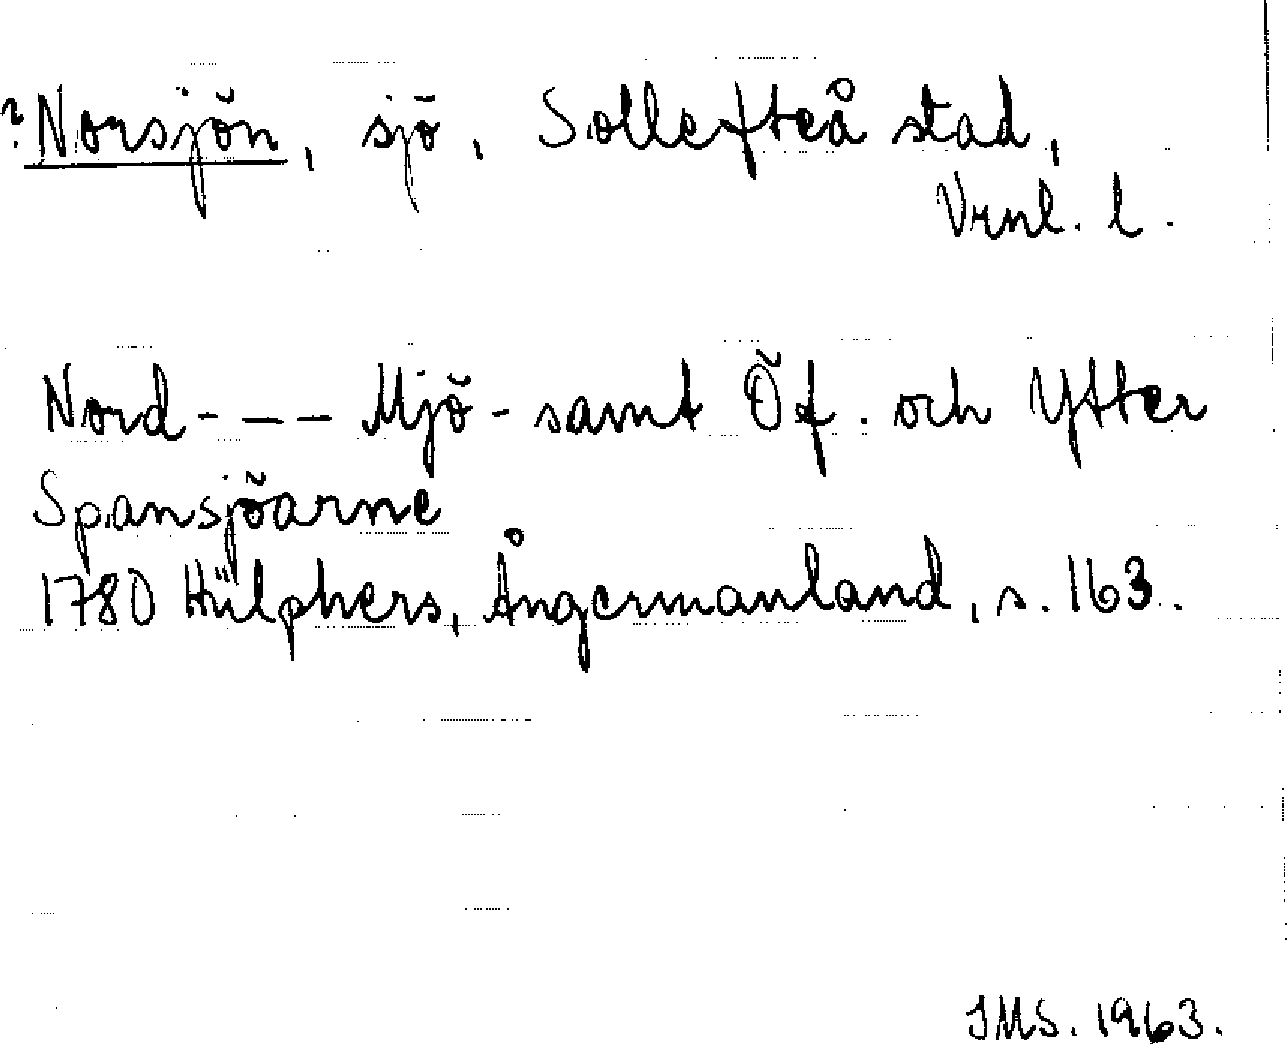 ? Norsjön, sjö, Sollefteå stad,
Vrnl. l.
Nord- – – Mjö- samt Öf. och Ytter
Spansjöarne
1780 Hülphers, Ångermanland, s. 163.
JMS. 1963.